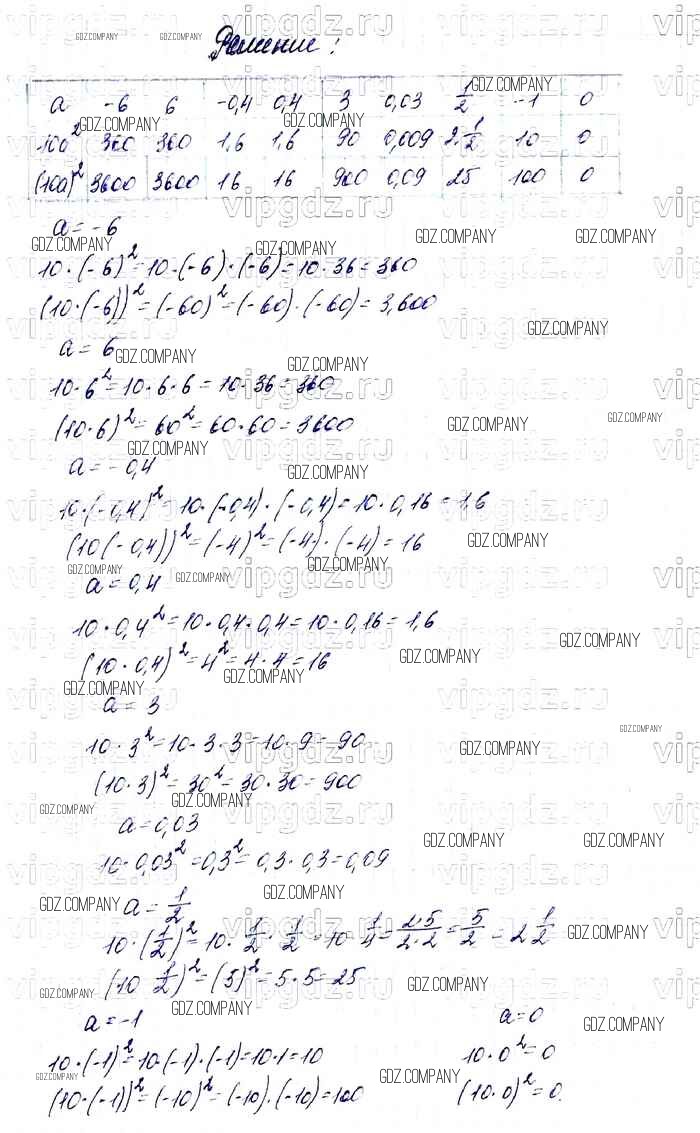 Решение:
a -6 6 -0,4 0,4 3 0,03 1/2 -1 0
10a² 360 360 1,6 1,6 90 0,009 2·1/2 10 0
(10a)² 3600 3600 16 16 900 0,09 25 100 0
a = -6
10·(-6)² = 10·(-6)·(-6) = 10·36 = 360
(10·(-6))² = (-60)² = (-60)·(-60) = 3,600
a = 6
10·6² = 10·6·6 = 10·36 = 360
(10·6)² = 60² = 60·60 = 3600
a = -0,4
10·(-0,4)² = 10·(-0,4)·(-0,4) = 10·0,16 = 1,6
(10(-0,4))² = (-4)² = (-4)·(-4) = 16
a = 0,4
10·0,4² = 10·0,4·0,4 = 10·0,16 = 1,6
(10·0,4)² = 4² = 4·4 = 16
a = 3
10·3² = 10·3·3 = 10·9 = 90
(10·3)² = 30² = 30·30 = 900
a = 0,03
10·0,03² = 0,3² = 0,3·0,3 = 0,09
a = 1/2
10·(1/2)² = 10·1/2·1/2 = 10·1/4 = 2·5/2·2 = 5/2 = 2 1/2
(10 1/2)² = (5)² = 5·5 = 25
a = -1
10·(-1)² = 10·(-1)·(-1) = 10·1 = 10
(10·(-1))² = (-10)² = (-10)·(-10) = 100
a = 0
10·0² = 0
(10·0)² = 0.
GDZ.COMPANY
vipgdz.ru